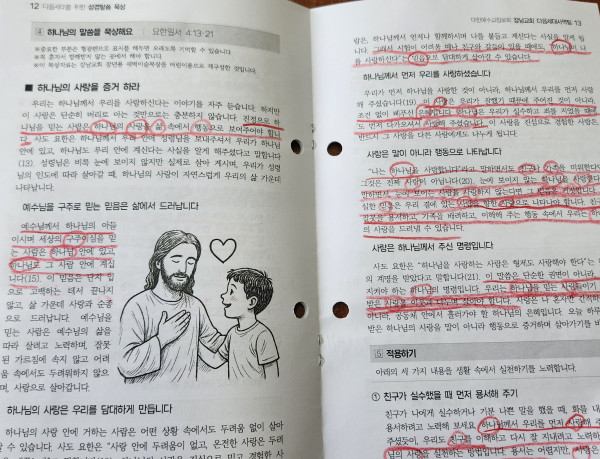 12 다음세대를 위한 성경말씀 묵상
4 하나님의 말씀을 묵상해요 요한일서 4:13-21
※중요한 부분은 형광펜으로 표시를 해두면 오래도록 기억할 수 있습니다.
■ 하나님의 사랑을 증거 하라
우리는 하나님께서 우리를 사랑하신다는 이야기를 자주 듣습니다. 하지만
이 사랑은 단순히 머리로 아는 것만으로는 충분하지 않습니다. 진정으로 하
나님을 믿는 사람은 하나님의 사랑을 삶 속에서 행동으로 보여주어야 합니
다. 사도 요한은 하나님께서 우리 안에 성령님을 보내주셔서 우리가 하나님
안에 있고, 하나님도 우리 안에 계신다는 사실을 알게 해주셨다고 말합니다
(13). 성령님은 비록 눈에 보이지 않지만 실제로 살아 계시며, 우리가 성령
님의 인도에 따라 살아갈 때, 하나님의 사랑이 자연스럽게 우리의 삶 가운데
나타납니다.
예수님을 구주로 믿는 믿음은 삶에서 드러납니다
예수님께서 하나님의 아들
이시며 세상의 구주이심을 믿
는 사람은 하나님 안에 있고,
하나님도 그 사람 안에 계십
니다(15). 이 믿음은 단지 입
으로 고백하는 데서 끝나지
않고, 삶 가운데 사랑과 순종
으로 드러납니다. 예수님을
믿는 사람은 예수님의 삶을
따라 살려고 노력하며, 잘못
된 가르침에 속지 않고 어려
움 속에서도 두려워하지 않으
며, 사랑으로 살아갑니다.
하나님의 사랑은 우리를 담대하게 만듭니다
하나님의 사랑 안에 거하는 사람은 어떤 상황 속에서도 두려움 없이 살아
갈 수 있습니다. 사도 요한은 "사랑 안에 두려움이 없고, 온전한 사랑은 두려
대한예수교장로회 강남교회 다음세대사역팀 13
은, 하나님께서 언제나 함께하시며 나를 붙들고 계신다는 사실을 알게 됩
니다. 그래서 시험이 어려울 때나 친구와 갈등이 있을 때에도, '하나님이 나
를 사랑하신다'는 믿음으로 담대하게 살아갈 수 있습니다.
하나님께서 먼저 우리를 사랑하셨습니다
우리가 먼저 하나님을 사랑한 것이 아니라, 하나님께서 우리를 먼저 사랑
해 주셨습니다(19). 이 사랑은 우리가 잘했기 때문에 주어진 것이 아니라,
조건 없이 베푸신 은혜입니다. 하나님은 우리가 실수하고 죄를 지었을 때에
도 먼저 다가오셔서 사랑해 주셨습니다. 이 사랑을 진심으로 경험한 사람은
반드시 그 사랑을 다른 사람에게도 나누게 됩니다.
사랑은 말이 아니라 행동으로 나타납니다
"나는 하나님을 사랑합니다"라고 말하면서도 친구나 가족을 미워한다면
그것은 진짜 사랑이 아닙니다(20). 눈에 보이지 않는 하나님을 사랑한다고
말하면서, 눈앞에 보이는 사람을 사랑하지 않는다면 그
사랑은 하나님께서 주신 명령입니다
사도 요한은 "하나님을 사랑하는 사람은 형제도 사랑해야 한다"는
의 계명을 받았다고 말합니다(21). 이 말씀은 단순한 권면이 아니라,
지켜야 하는 하나님의 명령입니다. 우리는 하나님을 믿는 사람들이기
받은 사랑을 이웃과 나누며 살아야 합니다. 사랑은 나 혼자만 간직하는
아니라, 공동체 안에서 흘러가야 할 하나님의 은혜입니다. 오늘 하루
받은 하나님의 사랑을 말이 아니라 행동으로 증거하며 살아가기를 바
5 적용하기
아래의 세 가지 내용을 생활 속에서 실천하기를 노력합니다.
① 친구가 실수했을 때 먼저 용서해 주기
친구가 나에게 실수하거나 기분 나쁜 말을 했을 때, 화를 내
용서하려고 노력해 보세요. 하나님께서 우리를 먼저 사랑해
주셨듯이, 우리도 친구를 이해하고 다시 잘 지내려고 노력하
님의 사랑을 실천하는 방법입니다. 용서는 어렵지만, 사랑은